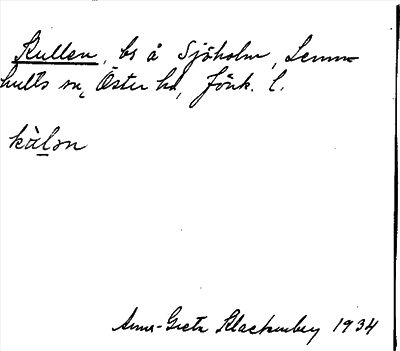 Kullen, bs å Sjöholm, Lemn-
hults sn, Öster hd, Jönk. l.
kàlən
Anna-Greta Klackenberg 1934